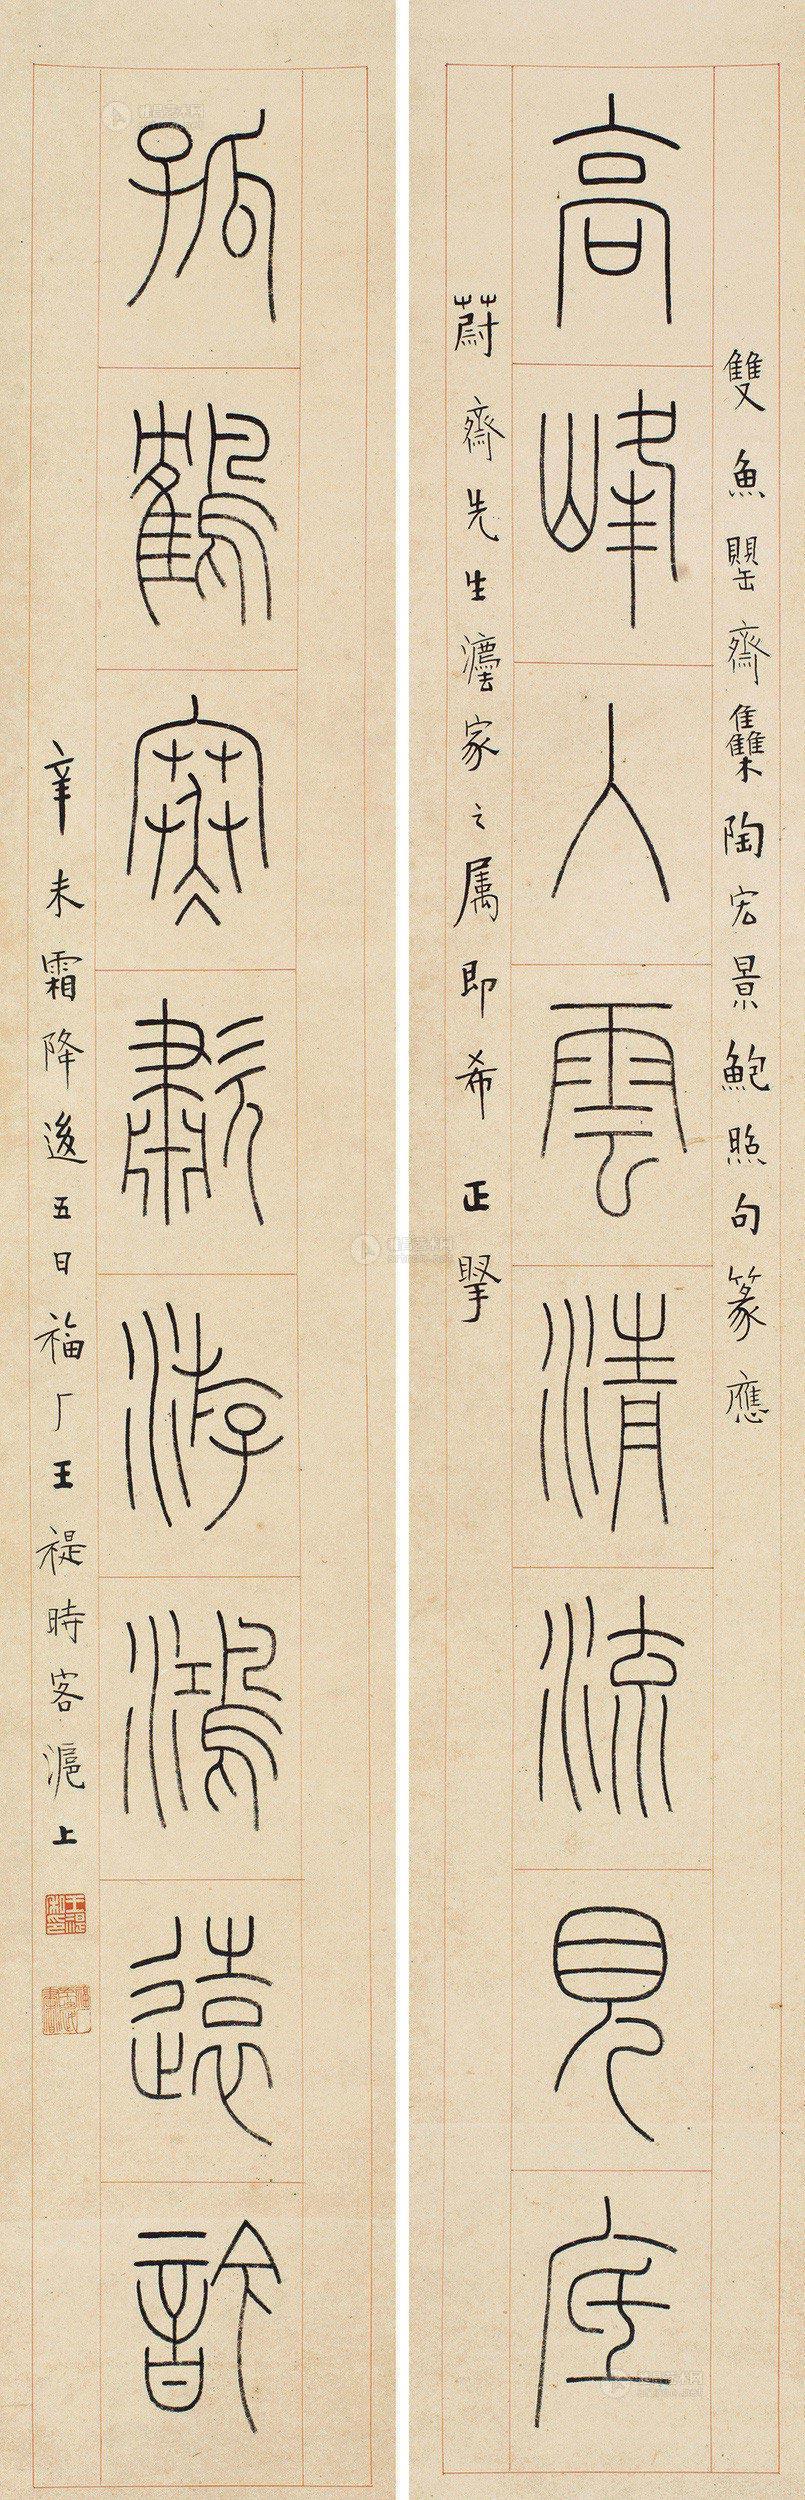 雙魚罌齋雧陶宏景鮑照句篆應
高峰入雲清流見底
蔚齋先生灋家之属即希正掔
孤鶴寒歗游鴻遠訡
辛未霜降後五日福厂王禔時客滬上
王禔私印